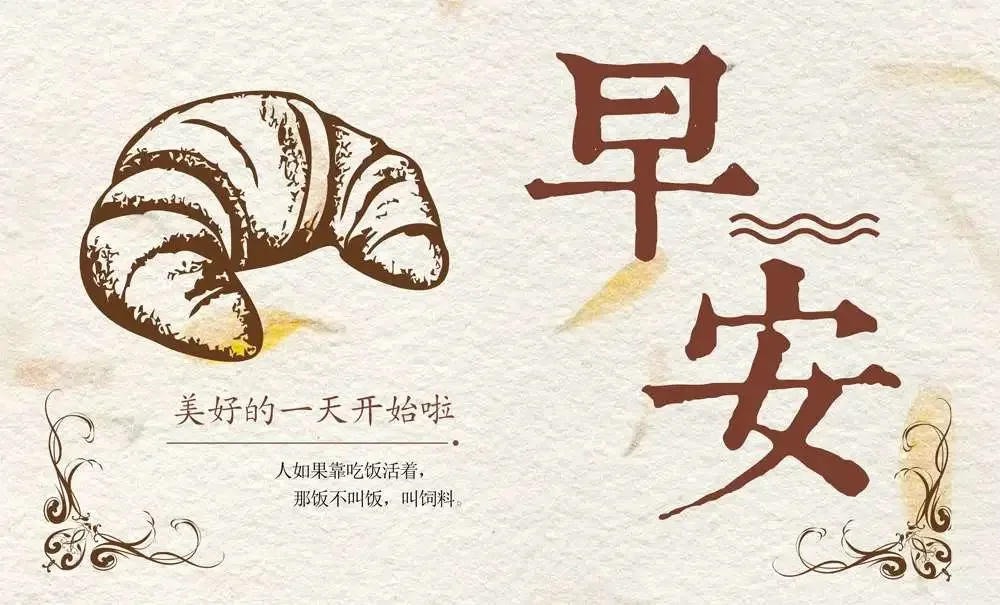 早安
美好的一天开始啦
人如果靠吃饭活着，
那饭不叫饭，叫饲料。